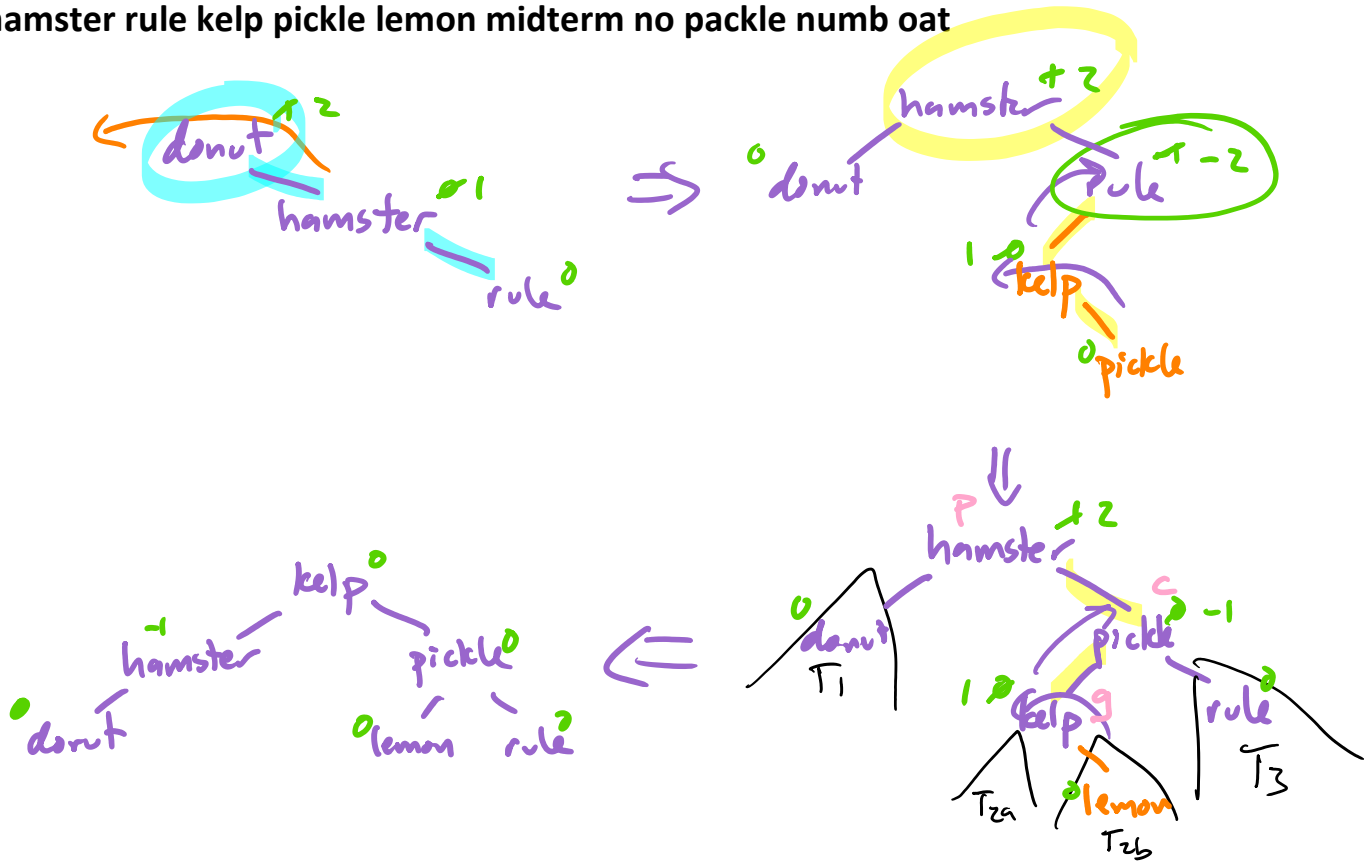 hamster rule kelp pickle lemon midterm no packle numb oat
donut 2
hamster 0 1
rule 0
hamster + 2
0 donut
rule - 2
1 0 kelp
0 pickle
P
hamster 2
C
0 donut
pickle 0 -1
T1
1 0 kelp g
rule 0
T3
T2a
0 lemon
T2b
kelp 0
-1
hamster
pickle 0
0 donut
0 lemon
rule 0